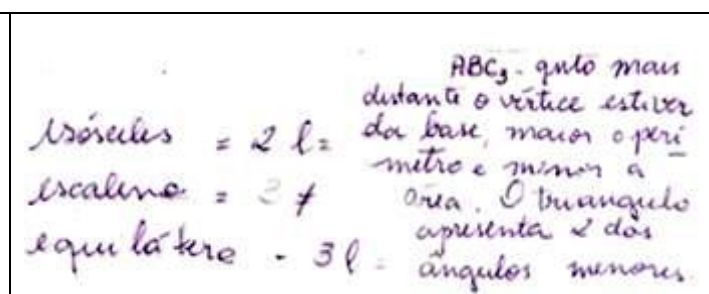 isósceles = 2 l =
escaleno = 3 ≠
equilátero - 3 l =
ABC3 - qnto mais
distante o vértice estiver
da base, maior o perí
metro e menor a
área. O triangulo
apresenta 2 dos
ângulos menores.